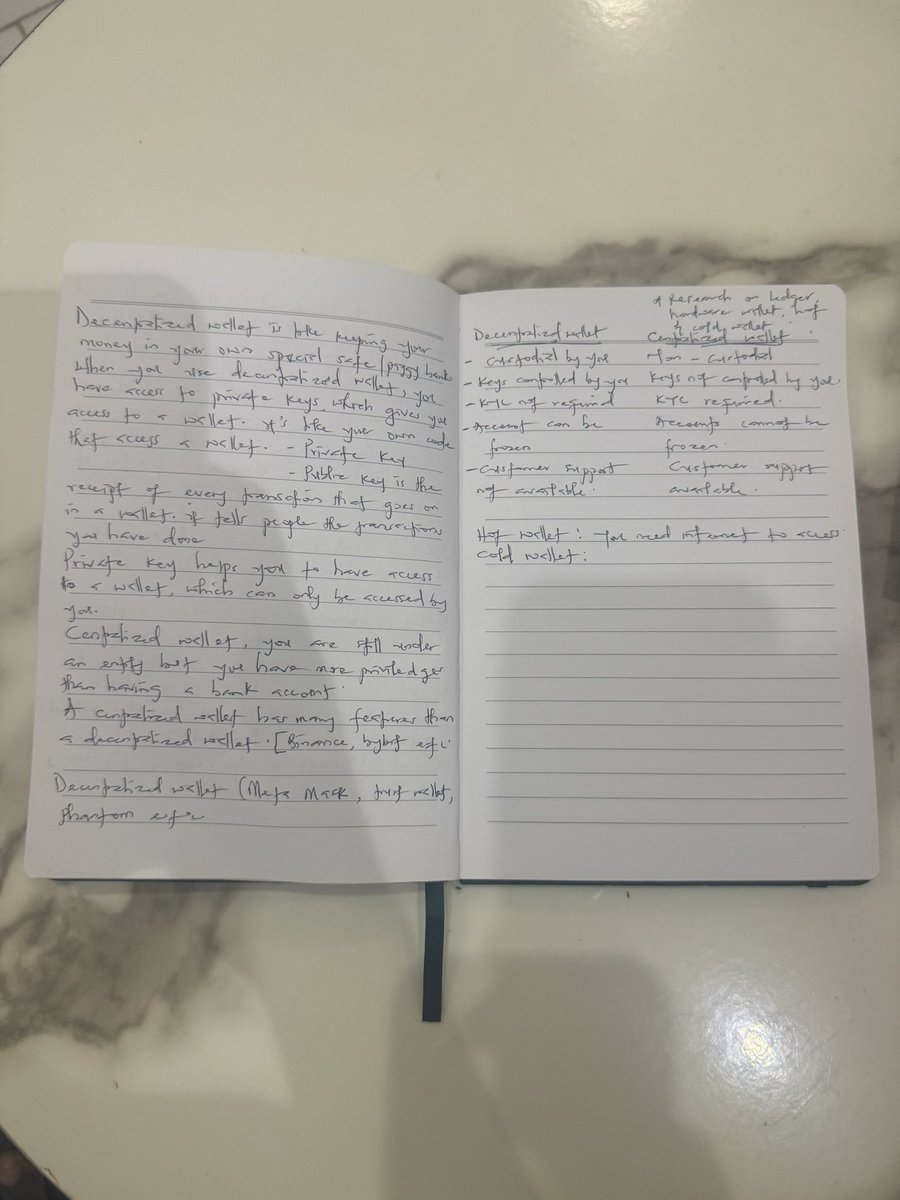 Decentralized wallet is like keeping your
money in your own special safe/piggy bank
When you use decentralized wallet, you
have access to private keys, which gives you
access to a wallet. it's like your own code
that access a wallet. - Private Key
- Public key is the
receipt of every transaction that goes on
in a wallet. it tells people the transactions
you have done
Private key helps you to have access
to a wallet, which can only be accessed by
you.
Centralized wallet, you are still under
an entity but you have more priviledges
than having a bank account.
A centralized wallet has many features than
a decentralized wallet. [Binance, bybit etc.
Decentralized wallet (Meta Mask, trust wallet,
Phantom etc
* Research on Ledger,
hardware wallet, hot
& cold wallet
Decentralized wallet Centralized wallet
- Custodial by you Non - custodial
- Keys controlled by you Keys not controlled by you.
- KYC not required KYC required.
- Account can be Accounts cannot be
frozen frozen.
- Customer support Customer support
not available. available.
Hot wallet: You need internet to access
cold wallet: